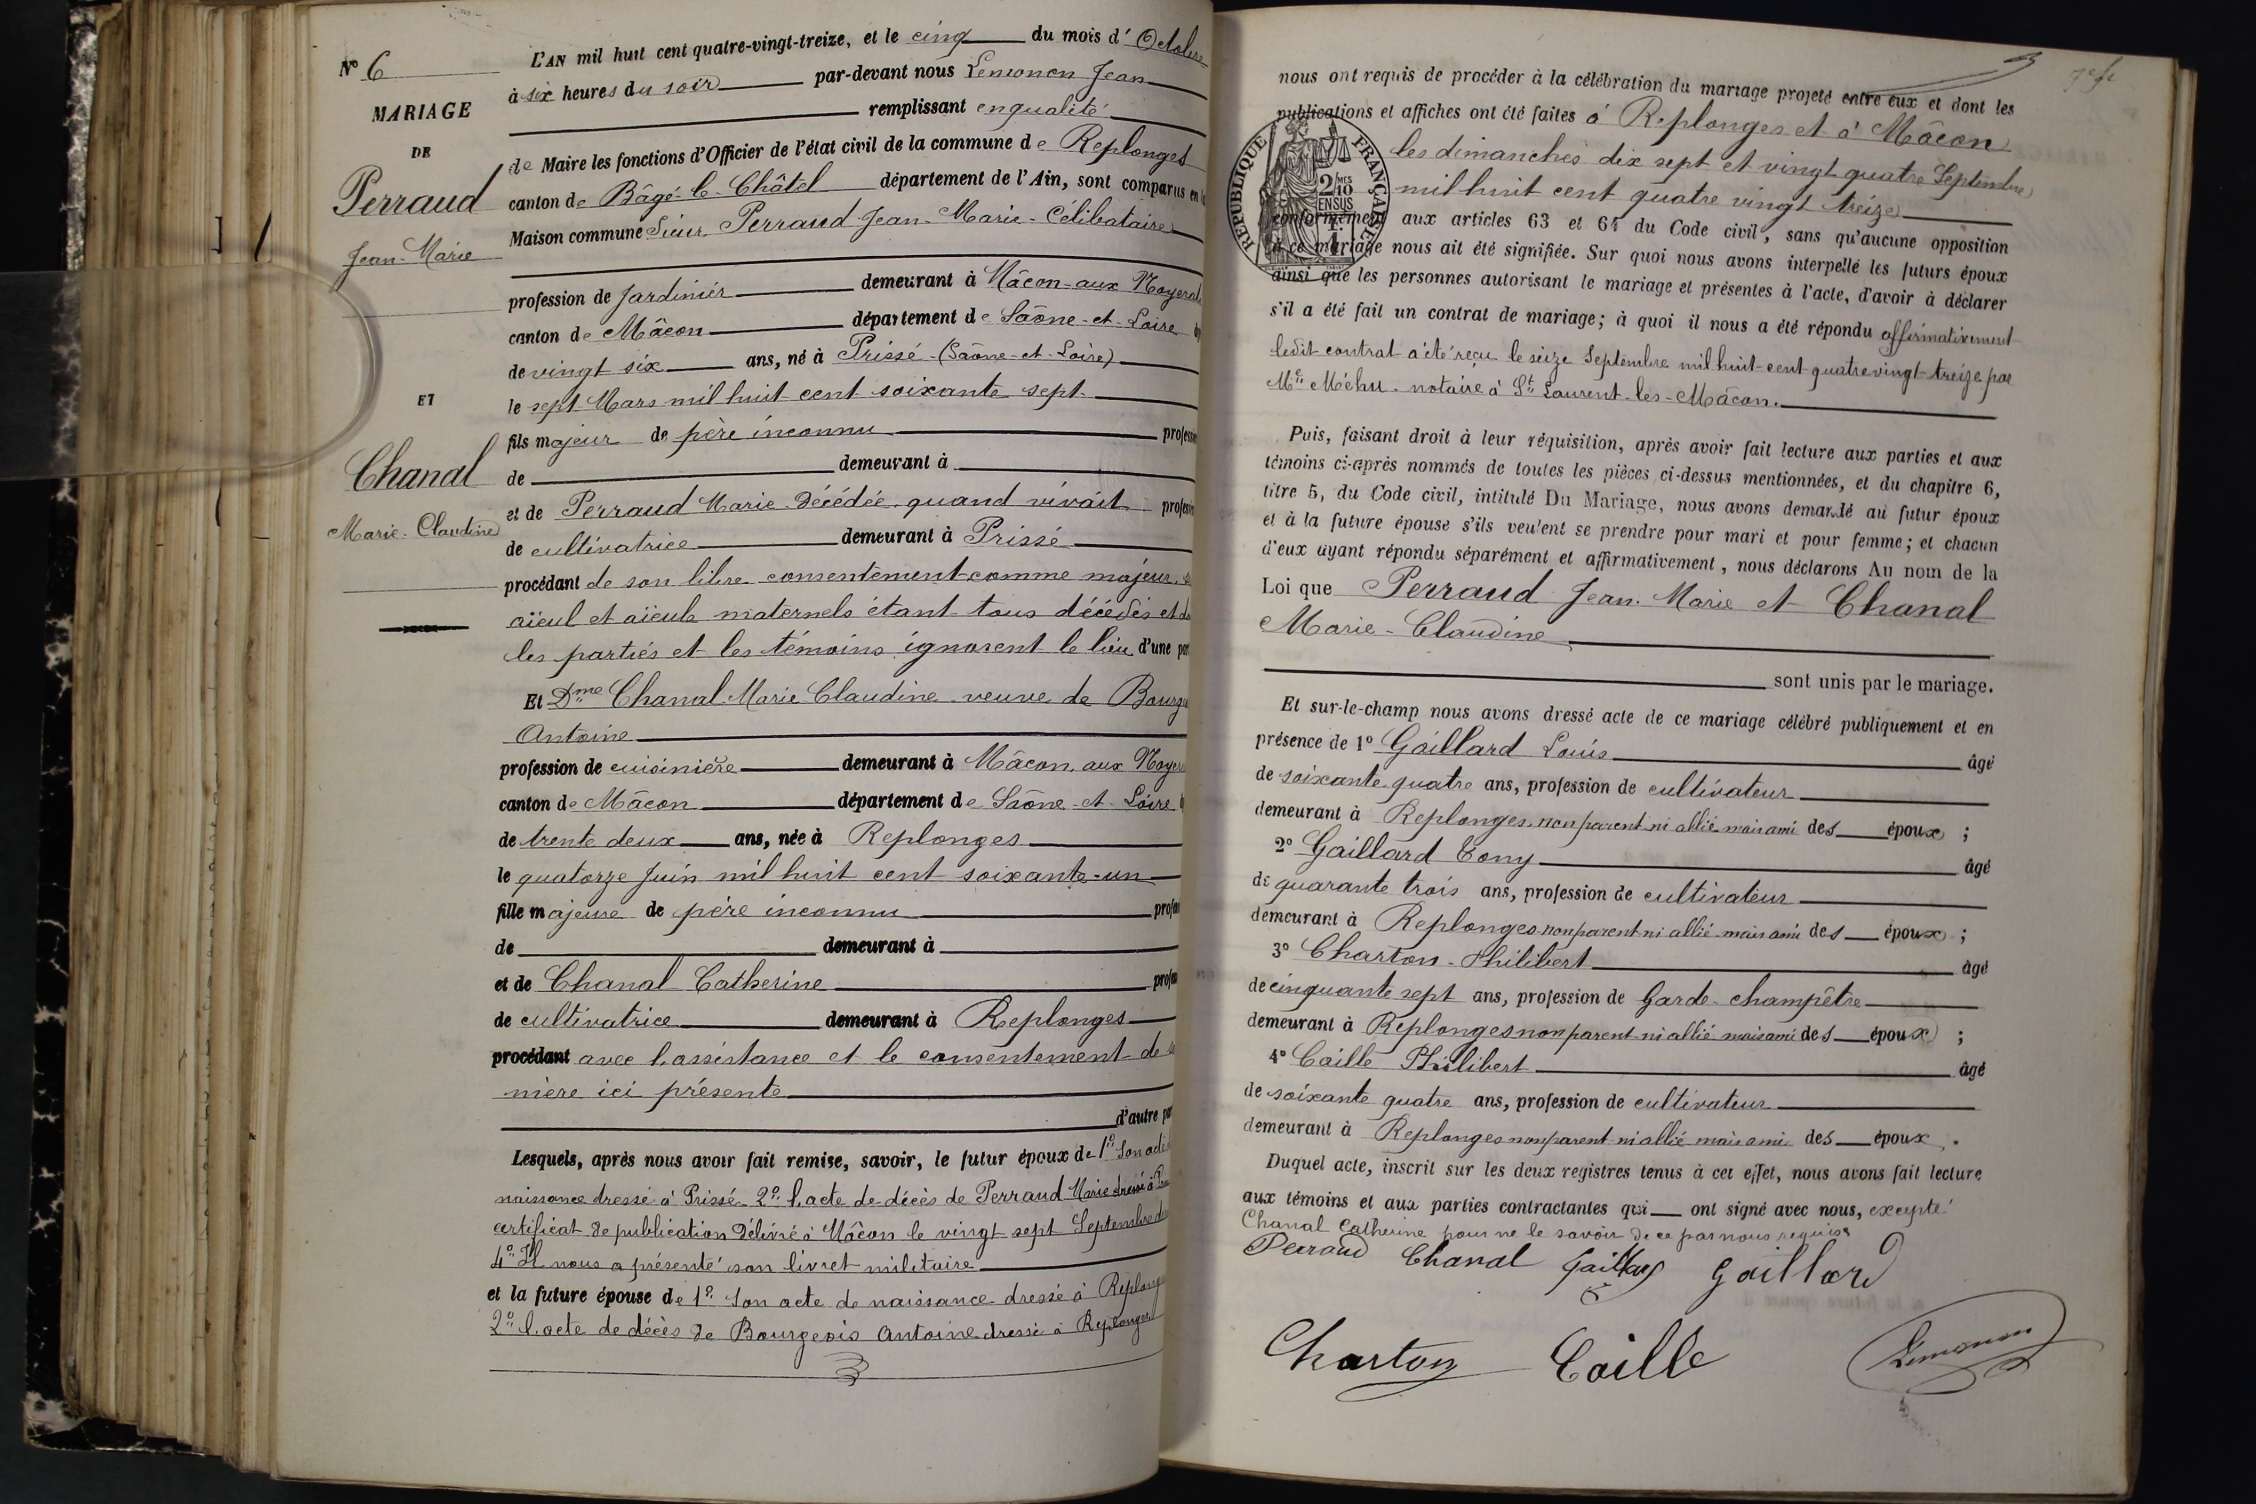 N° 6
MARIAGE
DE
Perraud
Jean-Marie
ET
Chanal
Marie-Claudine
L'AN mil huit cent quatre-vingt-treize, et le cinq du mois d'Octobre
à six heures du soir par-devant nous Lemonon Jean
remplissant en qualité
de Maire les fonctions d'Officier de l'état civil de la commune de Replonges
canton de Bâgé-le-Châtel département de l'Ain, sont comparus en la
Maison commune Sieur Perraud Jean-Marie-Célibataire
profession de Jardinier demeurant à Mâcon-aux
canton de Mâcon département de Saône-et-Loire
de vingt six ans, né à Prissé-(Saône-et-Loire)
le sept Mars mil huit cent soixante sept.
fils majeur de père inconnu profession
de demeurant à
et de Perraud Marie Décédée quand vivait profession
de cultivatrice demeurant à Prissé
procédant de son libre consentement comme majeur
aïeul et aïeule maternels étant tous décédés et
les parties et les témoins ignorent le lieu d'une part
Et Dme Chanal Marie Claudine veuve de
Antoine
profession de cuisinière demeurant à Mâcon, aux
canton de Mâcon département de Saône-et-Loire
de trente deux ans, née à Replonges
le quatorze Juin mil huit cent soixante-un
fille majeure de père inconnu
de demeurant à
et de Chanal Catherine
de cultivatrice demeurant à Replonges
procédant avec l'assistance et le consentement de
mère ici présente
d'autre part
Lesquels, après nous avoir fait remise, savoir, le futur époux de 1° Son acte
naissance dressé à Prissé 2° l'acte de décès de Perraud Marie dressé à
certificat de publication Délivré à Mâcon le vingt sept Septembre
4° Il nous a présenté son livret militaire
et la future épouse de 1° Son acte de naissance dressé à Replonges
2° l'acte de décès de Bourgeois Antoine dressé à Replonges
nous ont requis de procéder à la célébration du mariage projeté entre eux et dont les
publications et affiches ont été faites à Replonges et à Mâcon
les dimanches dix sept et vingt quatre Septembre
mil huit cent quatre vingt treize
RÉPUBLIQUE FRANÇAISE
2/10 MES
EN SUS
conformément aux articles 63 et 64 du Code civil, sans qu'aucune opposition
à ce mariage nous ait été signifiée. Sur quoi nous avons interpellé les futurs époux
ainsi que les personnes autorisant le mariage et présentes à l'acte, d'avoir à déclarer
s'il a été fait un contrat de mariage; à quoi il nous a été répondu affirmativement
ledit contrat a été reçu le seize Septembre mil huit-cent quatre vingt-treize par
Me Méhu notaire à St Laurent-les-Mâcon.
Puis, faisant droit à leur réquisition, après avoir fait lecture aux parties et aux
témoins ci-après nommés de toutes les pièces ci-dessus mentionnées, et du chapitre 6,
titre 5, du Code civil, intitulé Du Mariage, nous avons demandé au futur époux
et à la future épouse s'ils veulent se prendre pour mari et pour femme; et chacun
d'eux ayant répondu séparément et affirmativement, nous déclarons Au nom de la
Loi que Perraud Jean-Marie et Chanal
Marie-Claudine
sont unis par le mariage.
Et sur-le-champ nous avons dressé acte de ce mariage célébré publiquement et en
présence de 1° Gaillard Louis âgé
de soixante quatre ans, profession de cultivateur
demeurant à Replonges non parent ni allié mais ami des époux ;
2° Gaillard Tony âgé
de quarante trois ans, profession de cultivateur
demeurant à Replonges non parent ni allié mais ami des époux ;
3° Charton Philibert âgé
de cinquante sept ans, profession de Garde-champêtre
demeurant à Replonges non parent ni allié mais ami des époux ;
4° Caille Philibert âgé
de soixante quatre ans, profession de cultivateur
demeurant à Replonges non parent ni allié mais ami des époux.
Duquel acte, inscrit sur les deux registres tenus à cet effet, nous avons fait lecture
aux témoins et aux parties contractantes qui ont signé avec nous, excepté
Chanal Catherine pour ne le savoir de ce par nous requise
Perraud Chanal Gaillard Gaillard
Charton Caille Lemonon